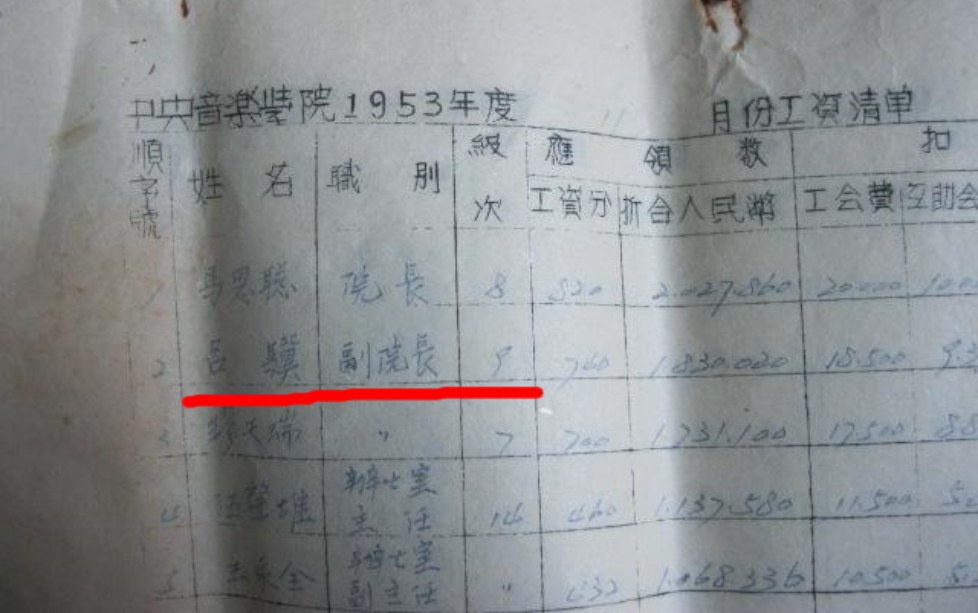 中央音楽学院1953年度 月份工資清单
順字號 姓名 職別 級次 應領数 扣
工資分 折合人民幣 工会費 互助会
1 馬思聪 院長 8 820 2.027.860 20.000 100
2 吕驥 副院長 9 740 1.830.020 18.500
3 天瑞 〃 7 700 1.731.100 17.500
4 辦公室主任 14 460 1.137.580 11.500
5 辦公室副主任 〃 432 1.068.336 10.500